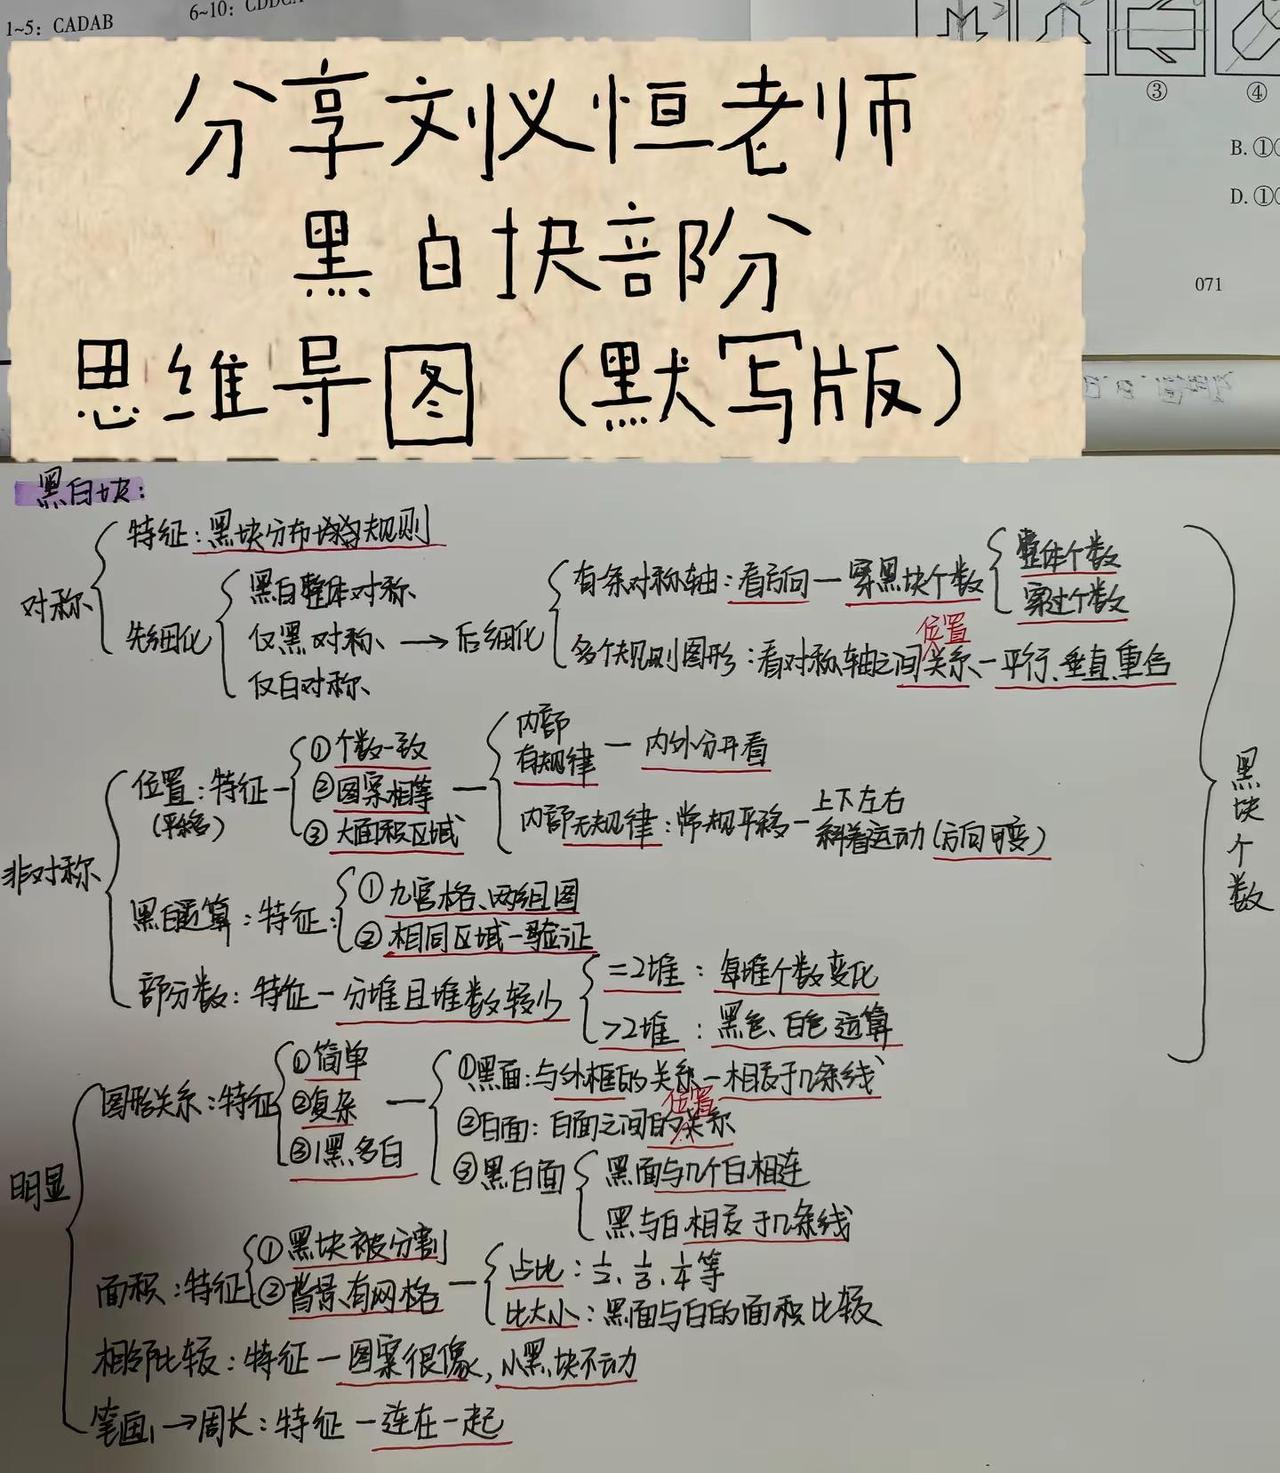 1~5: CADAB
6~10: CDDCA
③
④
B. ①
D. ①
071
分享刘必恒老师
黑白块部分
思维导图(默写版)
黑白块:
对称
特征:黑块分布均匀规则
先细化
黑白整体对称
仅黑对称 → 后细化
仅白对称
有一条对称轴:看方向—穿黑块个数
整体个数
穿过个数
多个规则图形:看对称轴之间位置关系—平行、垂直、重合
非对称
位置:特征—
(平移)
①个数一致
②图案相等
③大面积区域
内部
有规律 — 内外分开看
内部无规律:常规平移—上下左右
斜着运动(方向可变)
黑白运算:特征:
①九宫格、两组图
②相同区域—验证
部分数:特征—分堆且堆数较少
=2堆:每堆个数变化
>2堆:黑色、白色运算
黑块个数
明显
图形关系:特征
①简单
②复杂
③1黑多白
①黑面:与外框的关系—相交于几条线
②白面:白面之间的位置关系
③黑白面
黑面与几个白相连
黑与白相交于几条线
面积:特征
①黑块被分割
②背景有网格
占比:1/2、1/3、1/4等
比大小:黑面与白的面积比较
相邻比较:特征—图案很像,小黑块不动
笔画→周长:特征—连在一起